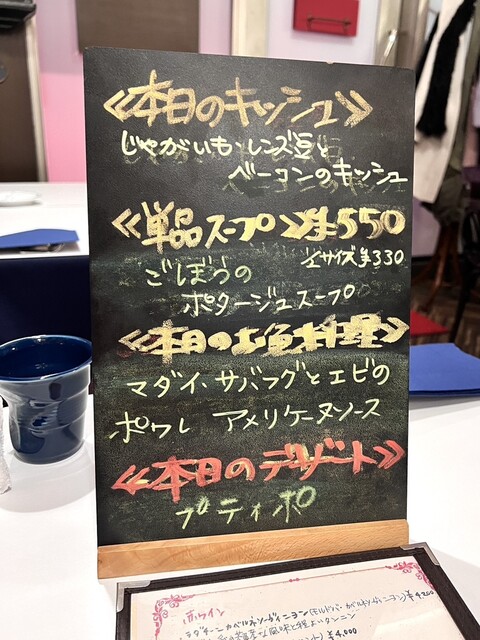 ≪本日のキッシュ≫
じゃがいも・レンズ豆と
ベーコンのキッシュ
≪単品スープ≫¥550
½サイズ¥330
ごぼうの
ポタージュスープ
≪本日のお魚料理≫
マダイ、サバフグとエビの
ポワレ アメリケーヌソース
≪本日のデザート≫
プティポ
赤ワイン
¥4,000